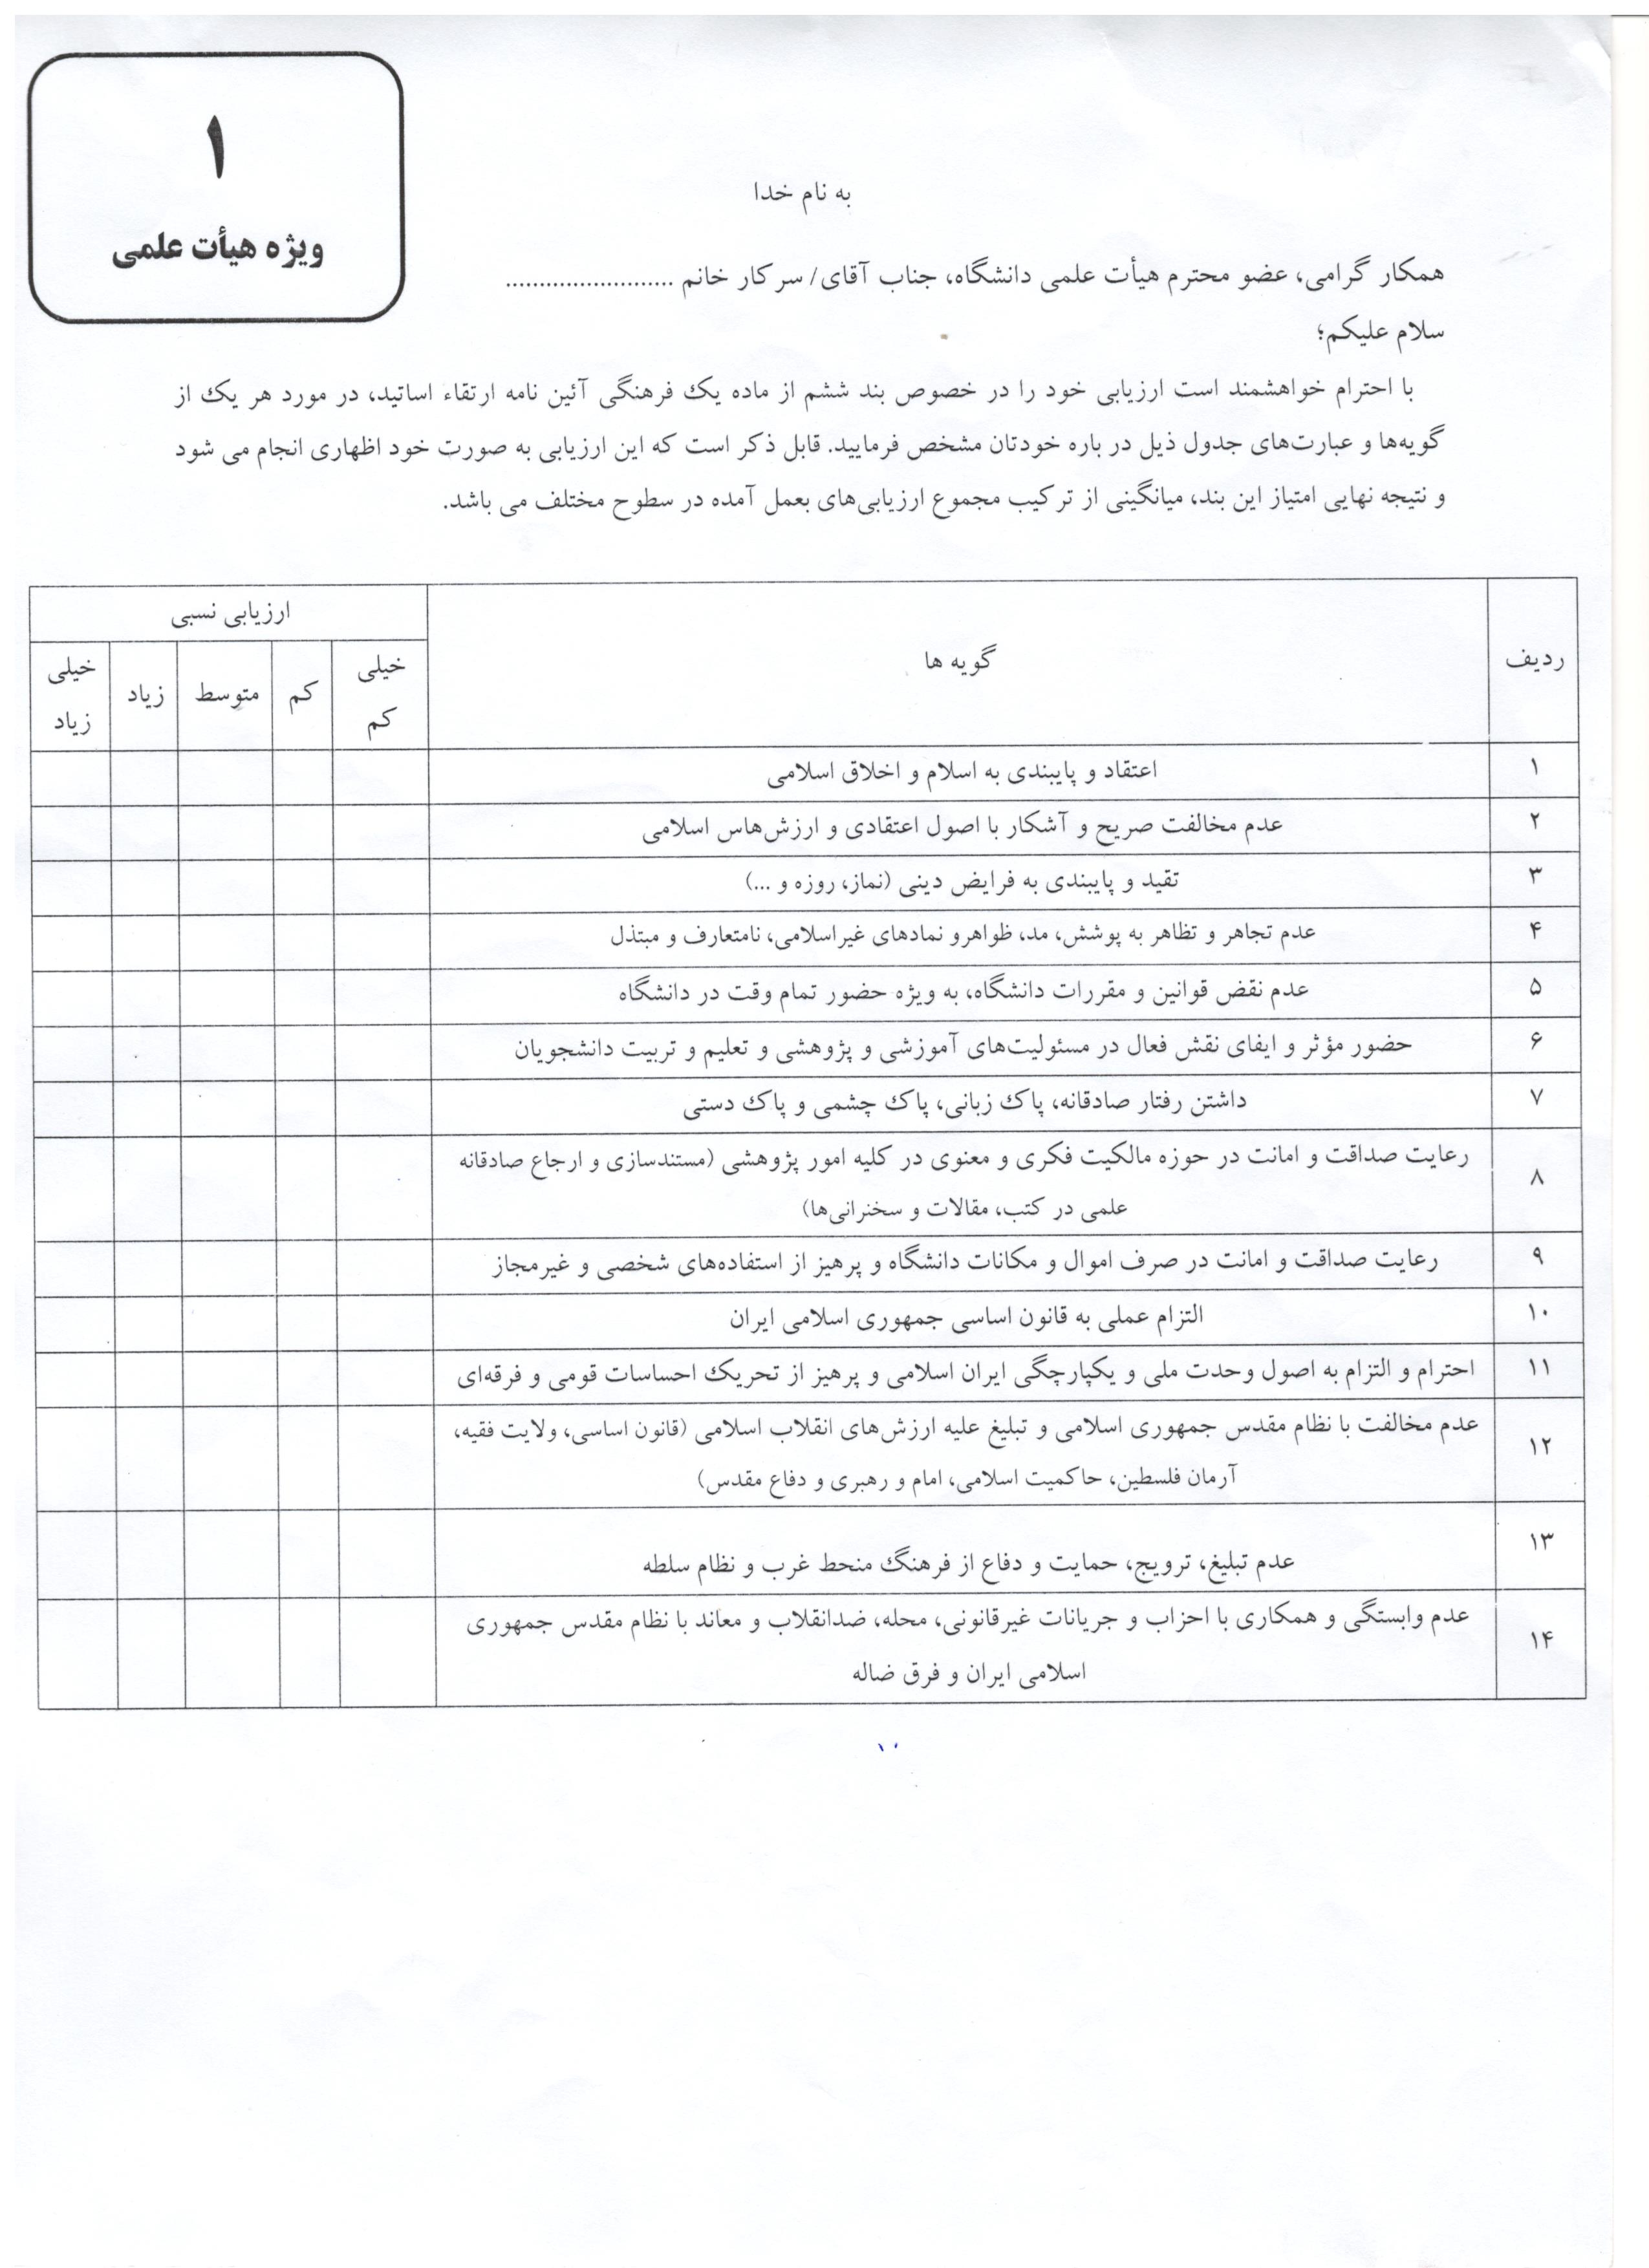 ۱
ویژه هیأت علمی
به نام خدا
همکار گرامی، عضو محترم هیأت علمی دانشگاه، جناب آقای/ سرکار خانم .........................
سلام علیکم؛
با احترام خواهشمند است ارزیابی خود را در خصوص بند ششم از ماده یک فرهنگی آئین نامه ارتقاء اساتید، در مورد هر یک از
گویه‌ها و عبارت‌های جدول ذیل در باره خودتان مشخص فرمایید. قابل ذکر است که این ارزیابی به صورت خود اظهاری انجام می شود
و نتیجه نهایی امتیاز این بند، میانگینی از ترکیب مجموع ارزیابی‌های بعمل آمده در سطوح مختلف می باشد.
ردیف گویه ها ارزیابی نسبی
خیلی کم کم متوسط زیاد خیلی زیاد
۱ اعتقاد و پایبندی به اسلام و اخلاق اسلامی
۲ عدم مخالفت صریح و آشکار با اصول اعتقادی و ارزش‌هاس اسلامی
۳ تقید و پایبندی به فرایض دینی (نماز، روزه و ...)
۴ عدم تجاهر و تظاهر به پوشش، مد، ظواهرو نمادهای غیراسلامی، نامتعارف و مبتذل
۵ عدم نقض قوانین و مقررات دانشگاه، به ویژه حضور تمام وقت در دانشگاه
۶ حضور مؤثر و ایفای نقش فعال در مسئولیت‌های آموزشی و پژوهشی و تعلیم و تربیت دانشجویان
۷ داشتن رفتار صادقانه، پاک زبانی، پاک چشمی و پاک دستی
۸ رعایت صداقت و امانت در حوزه مالکیت فکری و معنوی در کلیه امور پژوهشی (مستندسازی و ارجاع صادقانه
علمی در کتب، مقالات و سخنرانی‌ها)
۹ رعایت صداقت و امانت در صرف اموال و مکانات دانشگاه و پرهیز از استفاده‌های شخصی و غیرمجاز
۱۰ التزام عملی به قانون اساسی جمهوری اسلامی ایران
۱۱ احترام و التزام به اصول وحدت ملی و یکپارچگی ایران اسلامی و پرهیز از تحریک احساسات قومی و فرقه‌ای
۱۲ عدم مخالفت با نظام مقدس جمهوری اسلامی و تبلیغ علیه ارزش‌های انقلاب اسلامی (قانون اساسی، ولایت فقیه،
آرمان فلسطین، حاکمیت اسلامی، امام و رهبری و دفاع مقدس)
۱۳ عدم تبلیغ، ترویج، حمایت و دفاع از فرهنگ منحط غرب و نظام سلطه
۱۴ عدم وابستگی و همکاری با احزاب و جریانات غیرقانونی، محله، ضدانقلاب و معاند با نظام مقدس جمهوری
اسلامی ایران و فرق ضاله